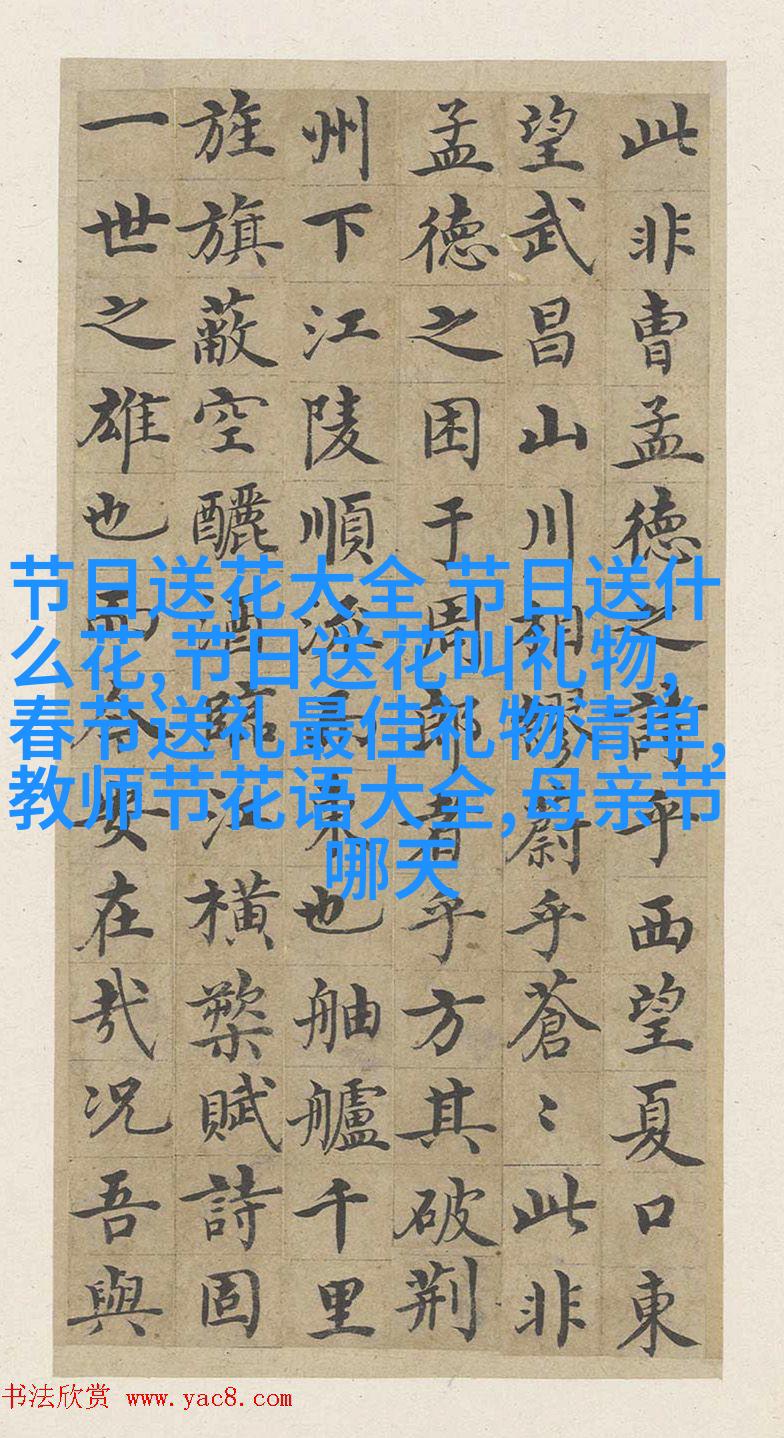 此非曹孟德之詩乎西望夏口東
望武昌山川相繆蔚乎蒼〻此非
孟德之困于周郎者乎方其破荆
州下江陵順流而東也舳艫千里
旌旗蔽空釃酒臨江橫槊賦詩固
一世之雄也而今安在哉况吾與
节日送花大全,节日送什
么花,节日送花叫礼物,
春节送礼最佳礼物清单,
教师节花语大全,母亲节
哪天
书法欣赏 www.yac8.com